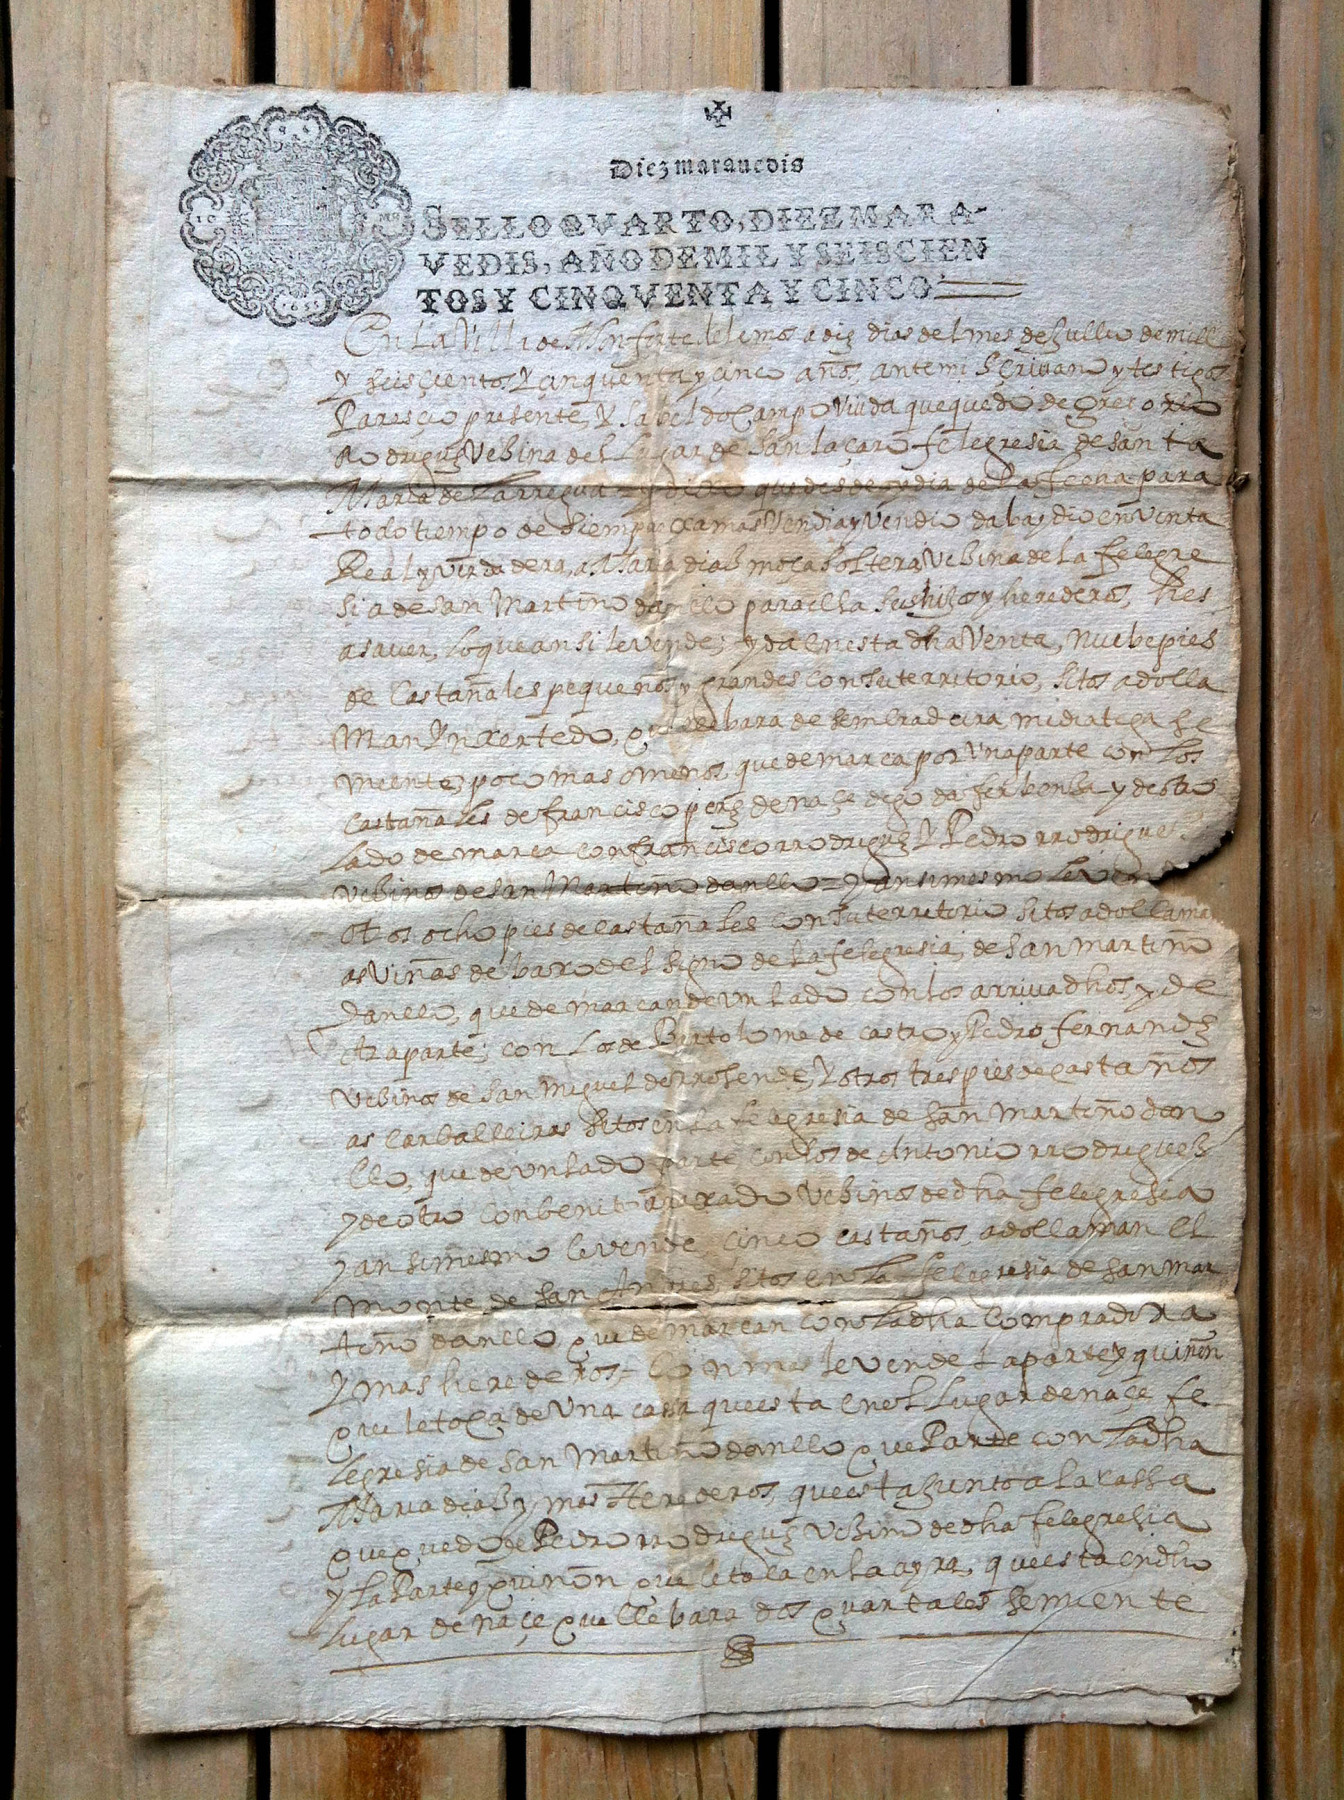 Diez maravedis
SELLO QVARTO, DIEZ MARA-
VEDIS, AÑO DE MIL Y SEISCIEN
TOS Y CINQVENTA Y CINCO
En la Villa de Monforte de lemos a diez dias del mes de Jullio de mill
y seisçientos y çinquenta y çinco años, ante mi escrivano y testigos
Paresçio presente, Ysabel do Campo viuda que quedo de gregorio
Rodriguez Vezina del Lugar de San laçaro felegresia de santa
Maria de la rregua y dixo que desde oy dia de la fecha para
todo tiempo de siempre xamas Vendia y Vendio daba y dio en Venta
Real y Verdadera, a Maria diaz moça soltera, Vezina de la felegre
sia de san Martiño danllo para ella sus hijos y herederos, hes
a saver, lo que ansi le vende; y da en esta dha Venta, nuebe pies
de Castañales pequeños y grandes con su territorio, sitos a do lla
man Ynxertedo, que llebara de sembradura midia tega se
miente poco mas o menos, que demarca por Una parte con los
Castañales de françisco perez de naçe y de otro
lado demarca con françisco rrodriguez y Pedro rrodriguez
Vezinos de san Martiño danllo = y ansimesmo le ven
otros ocho pies de castañales con su territorio sitos a do llama
as Viñas de baxo del signo de la felegresia, de san martiño
danllo, que demarcan de un lado con los arriva dhos, y de
otra parte, con los de Bartolome de castro y Pedro fernandz
Vezinos de san miguel de rrosende, y otros tres pies de castaños
as Carballeiras sitos en la felegresia de san martiño dan
llo, que de un lado parte con los de Antonio rrodriguez
y de otro con benito Vezinos de dha felegresia
y ansimesmo le vende, cinco castaños, a do llaman el
monte de san Andres sitos en la felegresia de san mar
tiño danllo que demarcan con la dha compradora
y mas herederos = le vende la parte y quiñon
que le toca de Una cassa que esta en el lugar de naçe fe
legresia de san Martiño danllo que Parte con la dha
Maria diaz y mas Herederos, que esta Junto a la cassa
que quedo de Pedro rrodriguez Vezino de dha felegresia
y la Parte y quiñon que le toca en la ayra, que esta en dho
lugar de naçe que llebara dos quartales semiente